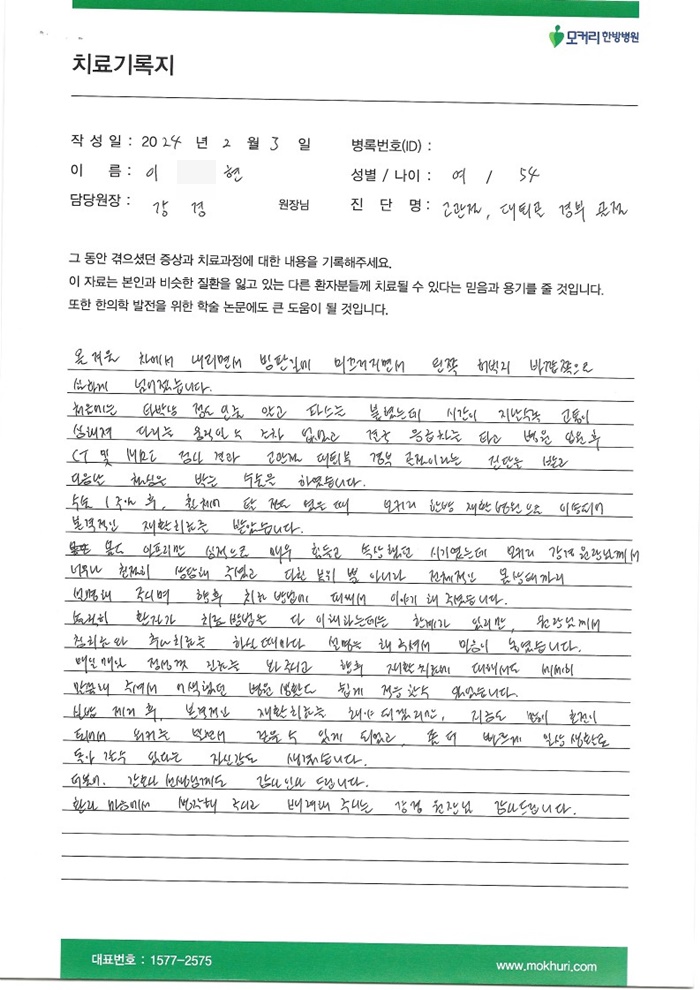 모커리한방병원
치료기록지
작성일 : 2024 년 2 월 3 일 병록번호(ID) :
이 름 : 이 현 성별 / 나이 : 여 / 54
담당원장 : 강 경 원장님 진 단 명 : 고관절, 대퇴골 경부 골절
그 동안 겪으셨던 증상과 치료과정에 대한 내용을 기록해주세요.
이 자료는 본인과 비슷한 질환을 잃고 있는 다른 환자분들께 치료될 수 있다는 믿음과 용기를 줄 것입니다.
또한 한의학 발전을 위한 학술 논문에도 큰 도움이 될 것입니다.
올 겨울 차에서 내리면서 빙판길에 미끄러지면서 왼쪽 허벅지 바깥쪽으로
심하게 넘어졌습니다.
처음에는 타박상 정도 인줄 알고 파스를 붙였는데 시간이 지날수록 고통이
심해져 다리를 움직일 수 조차 없었고 결국 응급차를 타고 병원 입원 후
CT 및 MRI 검사 결과 고관절 대퇴부 경부 골절이라는 진단을 받고
다음날 핀을 박는 수술을 하였습니다.
수술 1주일 후, 모커리 한방 재활병원으로 이송되어
본격적인 재활치료를 받았습니다.
몸도 아프지만 심적으로 매우 힘들고 속상했던 시기였는데 모커리 강경 원장님께서
너무나 친절히 상담해 주셨고 다친 부위 뿐 아니라 전체적인 몸상태까지
설명해 주시며 향후 치료 방법에 대해서 이야기 해 주셨습니다.
솔직히 환자가 치료 방법을 다 이해하는데는 한계가 있지만, 원장님께서
침치료와 추나치료를 하실 때마다 설명을 해 주셔서 믿음이 놓였습니다.
매일매일 정성껏 진료를 봐 주시고 향후 재활치료에 대해서도 세세히
말씀해 주셔서 어색했던 병원 생활도 쉽게 적응할 수 있었습니다.
실밥 제거 후, 본격적인 재활치료를 해야 되겠지만, 지금도 많이 호전이
되어서 워커를 밀면서 걸을 수 있게 되었고, 좀 더 빠르게 일상생활로
돌아갈 수 있다는 자신감도 생겼습니다.
더불어, 간호사 선생님께도 감사인사 드립니다.
환자 마음에서 생각해 주시고 배려해 주시는 강경 원장님 감사드립니다.
대표번호 : 1577-2575 www.mokhuri.com